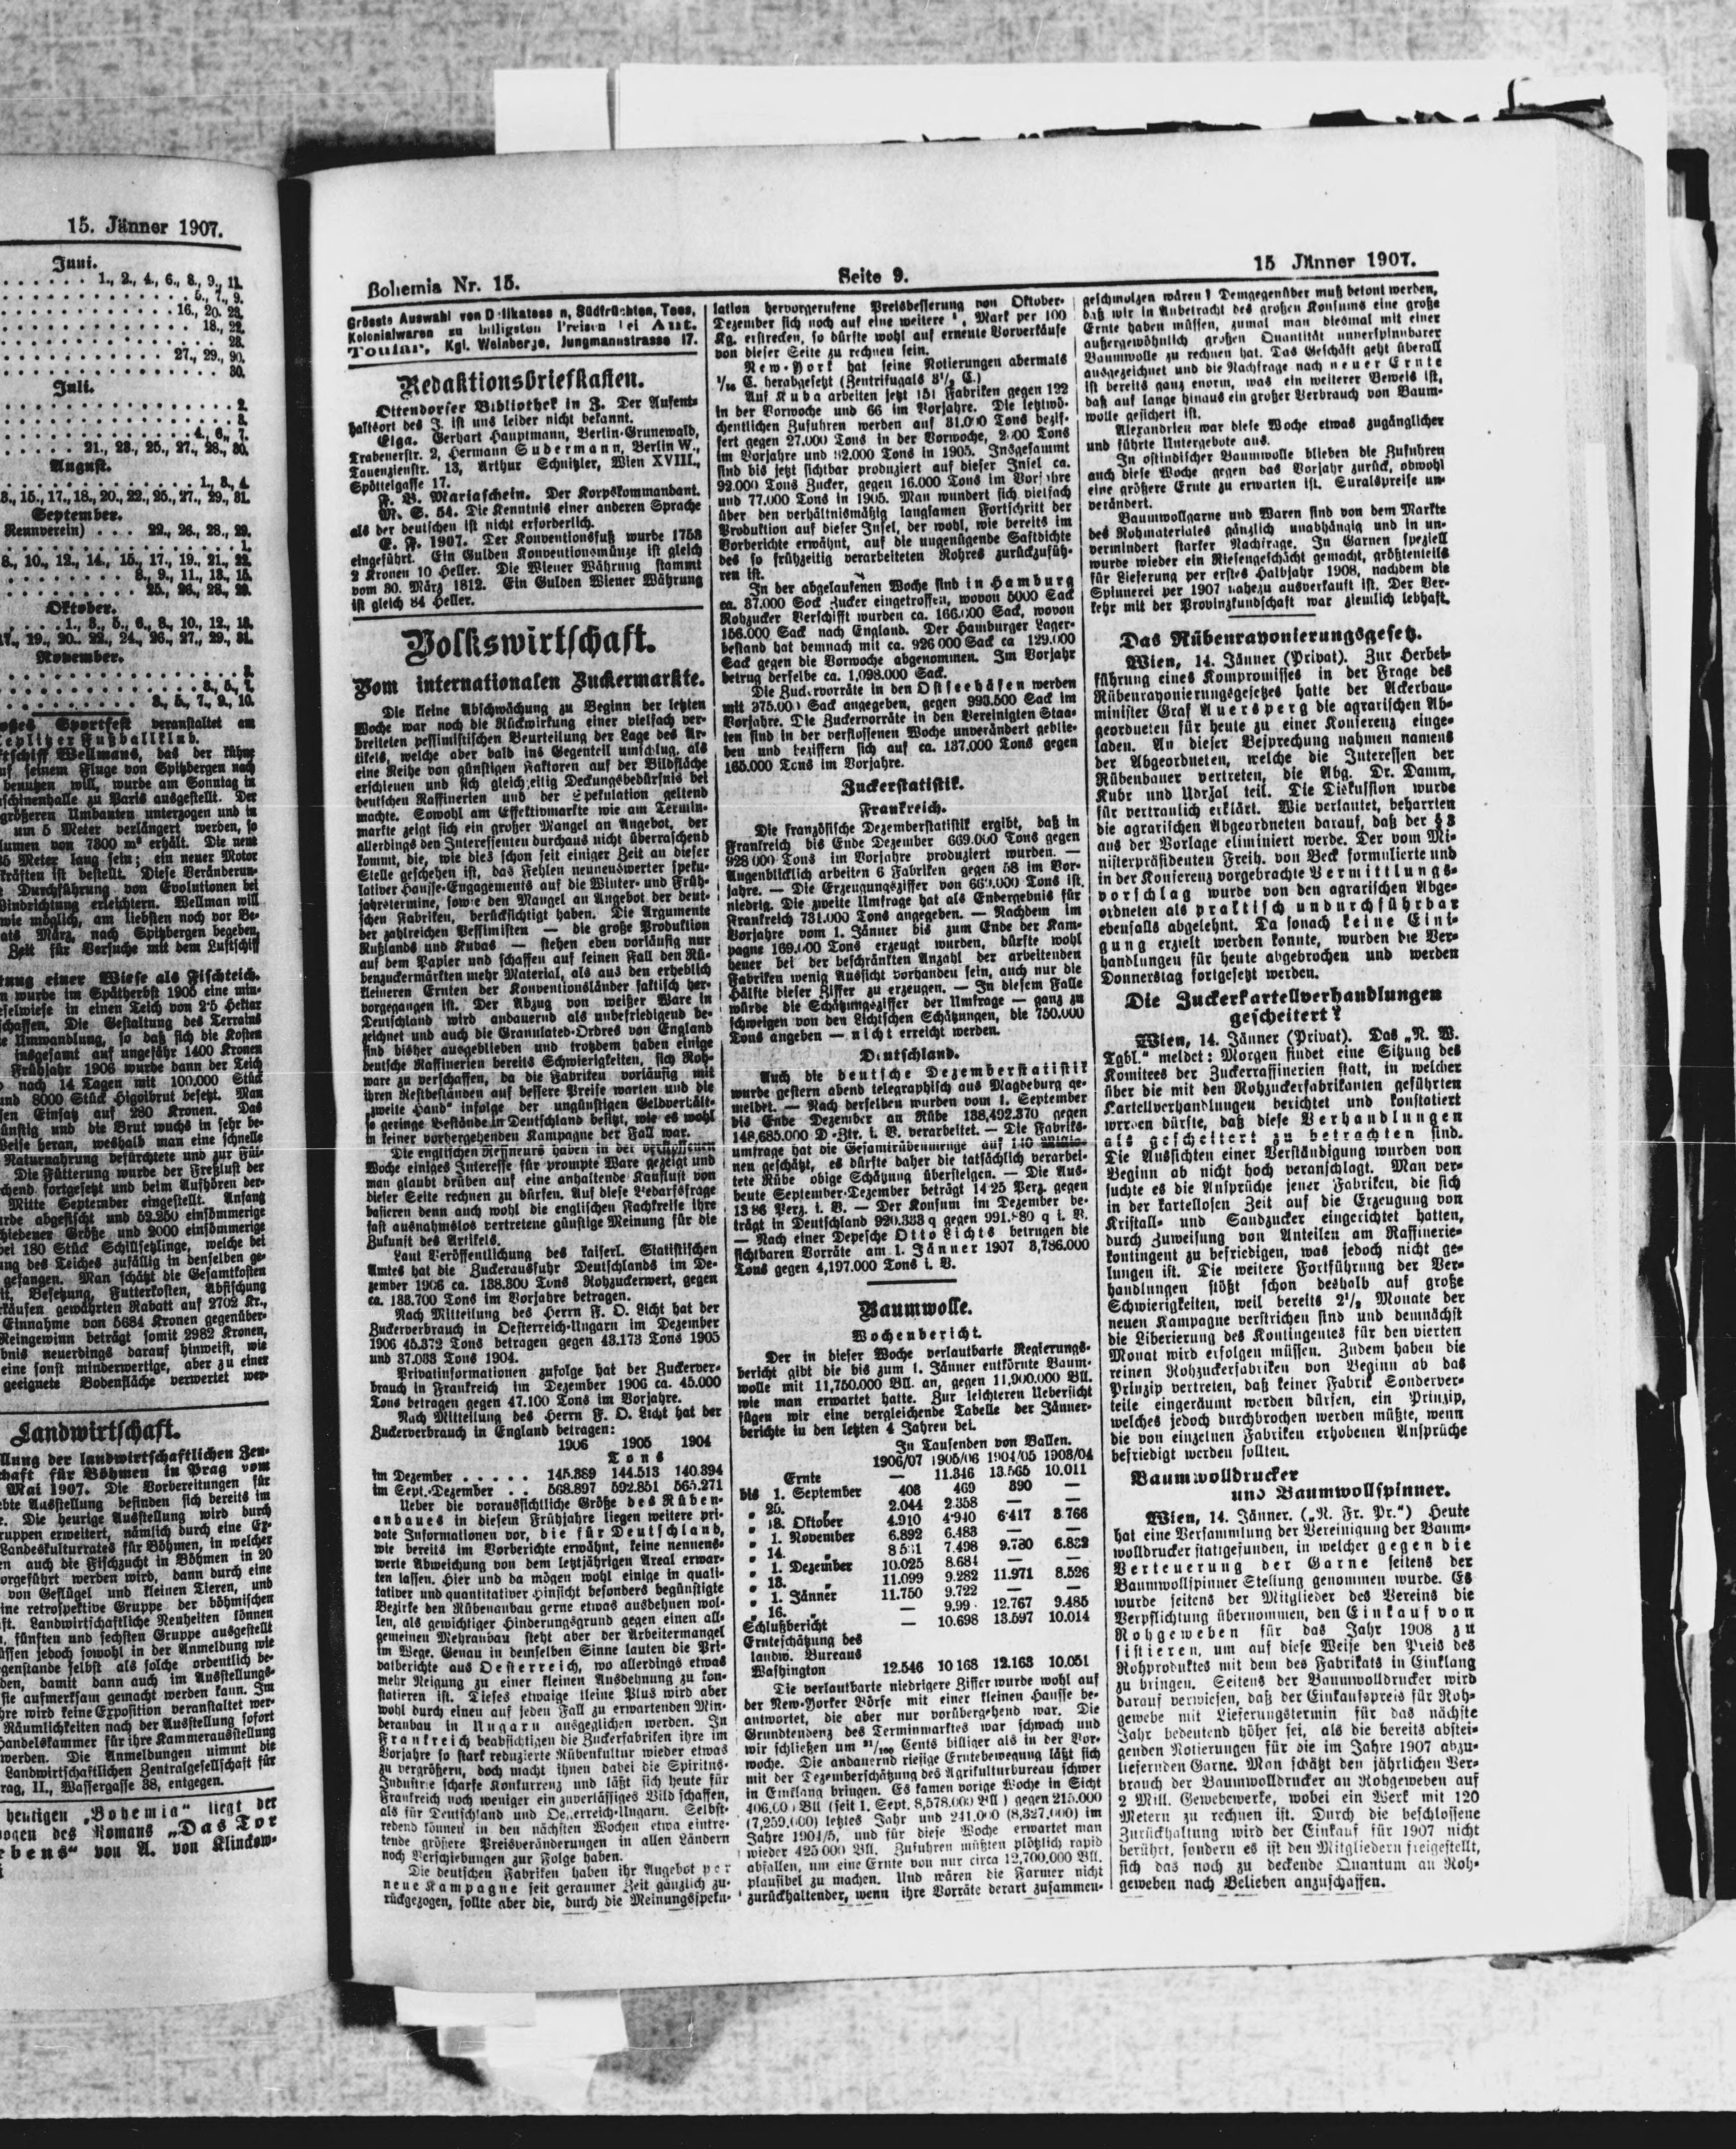 15. Jänner 1907.
Juni.
1., 2., 4., 6., 8., 9., 11.
5., 7., 9.
16., 20. 23.
18., 22.
28.
27., 29., 30.
30.
Juli.
2.
4., 6., 7.
21., 23., 25., 27., 28., 30.
August.
1., 3., 4.
15., 17., 18., 20., 22., 25., 27., 29., 31.
September.
Rennverein) . . . 22., 26., 28., 29.
1.
8., 10., 12., 14., 15., 17., 19., 21., 22.
8., 9., 11., 13., 15.
25., 26., 28., 29.
Oktober.
1., 3., 5., 6., 8., 10., 12., 13.
17., 19., 20.. 22., 24., 26., 27., 29., 31.
November.
3.
3., 5., 7.
3., 5., 7., 9., 10.
Sportfest veranstaltet am
Teplitzer Fußballklub.
Wellmans, das der kühne
seinem Fluge von Spitzbergen nach
benutzen will, wurde am Sonntag in
zu Paris ausgestellt. Der
größeren Umbauten unterzogen und in
um 5 Meter verlängert werden, so
von 7300 m³ erhält. Die neue
Meter lang sein; ein neuer Motor
ist bestellt. Diese Veränderun-
Durchführung von Evolutionen bei
erleichtern. Wellman will
wie möglich, am liebsten noch vor Be-
März, nach Spitzbergen begeben,
Zeit für Versuche mit dem Luftschiff
einer Wiese als Fischteich.
wurde im Spätherbst 1905 eine
in einen Teich von 2·5 Hektar
Die Gestaltung des Terrains
Umwandlung, so daß sich die Kosten
insgesamt auf ungefähr 1400 Kronen
Frühjahr 1906 wurde dann der Teich
nach 14 Tagen mit 100,000 Stück
und 8000 Stück Higoibrut besetzt. Man
Einsatz auf 280 Kronen. Das
und die Brut wuchs in sehr be-
heran, weshalb man eine schnelle
Naturnahrung befürchtete und zur Füt-
Die Fütterung wurde der Freßlust der
fortgesetzt und beim Aufhören der-
Mitte September eingestellt. Anfang
abgefischt und 52.250 einsömmerige
Größe und 2000 einsömmerige
180 Stück Schillsetzlinge, welche bei
des Teiches zufällig in denselben ge-
gefangen. Man schätzt die Gesamtkosten
Besetzung, Futterkosten, Abfischung
gewährten Rabatt auf 2702 Kr.,
Einnahme von 5684 Kronen gegenüber-
Reingewinn beträgt somit 2982 Kronen,
neuerdings darauf hinweist, wie
eine sonst minderwertige, aber zu einer
geeignete Bodenfläche verwertet wer-
Landwirtschaft.
der landwirtschaftlichen Zen-
für Böhmen in Prag vom
Mai 1907. Die Vorbereitungen für
Ausstellung befinden sich bereits im
Die heurige Ausstellung wird durch
erweitert, nämlich durch eine Ex-
Landeskulturrates für Böhmen, in welcher
auch die Fischzucht in Böhmen in 20
vorgeführt werden wird, dann durch eine
von Geflügel und kleinen Tieren, und
eine retrospektive Gruppe der böhmischen
Landwirtschaftliche Neuheiten können
fünften und sechsten Gruppe ausgestellt
müssen jedoch sowohl in der Anmeldung wie
selbst als solche ordentlich be-
den, damit dann auch im Ausstellungs-
sie aufmerksam gemacht werden kann. Im
wird keine Exposition veranstaltet wer-
Räumlichkeiten nach der Ausstellung sofort
Handelskammer für ihre Kammerausstellung
werden. Die Anmeldungen nimmt die
Landwirtschaftlichen Zentralgesellschaft für
II., Wassergasse 38, entgegen.
heutigen „Bohemia“ liegt der
des Romans „Das Tor
von A. von Klinckow-
Bohemia Nr. 15.
Seite 9.
15 Jänner 1907.
Grösste Auswahl von Delikatessen, Südfrüchten, Tees,
Kolonialwaren zu billigsten Preisen bei Ant.
Toular, Kgl. Weinberge, Jungmannstrasse 17.
Redaktionsbriefkasten.
Ottendorfer Bibliothek in Z. Der Aufent-
haltsort des J. ist uns leider nicht bekannt.
Elga. Gerhart Hauptmann, Berlin-Grunewald,
Trabenerstr. 2, Hermann Sudermann, Berlin W.,
Tauenzienstr. 13, Arthur Schnitzler, Wien XVIII.,
Spöttelgasse 17.
F. B. Mariaschein. Der Korpskommandant.
M. S. 54. Die Kenntnis einer anderen Sprache
als der deutschen ist nicht erforderlich.
E. F. 1907. Der Konventionsfuß wurde 1753
eingeführt. Ein Gulden Konventionsmünze ist gleich
2 Kronen 10 Heller. Die Wiener Währung stammt
vom 30. März 1812. Ein Gulden Wiener Währung
ist gleich 84 Heller.
Volkswirtschaft.
Vom internationalen Zuckermarkte.
Die kleine Abschwächung zu Beginn der letzten
Woche war noch die Rückwirkung einer vielfach ver-
breiteten pessimistischen Beurteilung der Lage des Ar-
tikels, welche aber bald ins Gegenteil umschlug, als
eine Reihe von günstigen Faktoren auf der Bildfläche
erschienen und sich gleichzeitig Deckungsbedürfnis bei
deutschen Raffinerien und der Spekulation geltend
machte. Sowohl am Effektivmarkte wie am Termin-
markte zeigt sich ein großer Mangel an Angebot, der
allerdings den Interessenten durchaus nicht überraschend
kommt, die, wie dies schon seit einiger Zeit an dieser
Stelle geschehen ist, das Fehlen nennenswerter speku-
lativer Hausse-Engagements auf die Winter- und Früh-
jahrstermine, sowie den Mangel an Angebot der deut-
schen Fabriken, berücksichtigt haben. Die Argumente
der zahlreichen Pessimisten — die große Produktion
Rußlands und Kubas — stehen eben vorläufig nur
auf dem Papier und schaffen auf keinen Fall den Rü-
benzuckermärkten mehr Material, als aus den erheblich
kleineren Ernten der Konventionsländer faktisch her-
vorgegangen ist. Der Abzug von weißer Ware in
Deutschland wird andauernd als unbefriedigend be-
zeichnet und auch die Granulated-Ordres von England
sind bisher ausgeblieben und trotzdem haben einige
deutsche Raffinerien bereits Schwierigkeiten, sich Roh-
ware zu verschaffen, da die Fabriken vorläufig mit
ihren Restbeständen auf bessere Preise warten und die
„zweite Hand“ infolge der ungünstigen Geldverhält-
so geringe Bestände in Deutschland besitzt, wie es wohl
in keiner vorhergehenden Kampagne der Fall war.
Die englischen Refineurs haben in der
Woche einiges Interesse für prompte Ware gezeigt und
man glaubt drüben auf eine anhaltende Kauflust von
dieser Seite rechnen zu dürfen. Auf diese Bedarfsfrage
basieren denn auch wohl die englischen Fachkreise ihre
fast ausnahmslos vertretene günstige Meinung für die
Zukunft des Artikels.
Laut Veröffentlichung des kaiserl. Statistischen
Amtes hat die Zuckerausfuhr Deutschlands im De-
zember 1906 ca. 138.300 Tons Rohzuckerwert, gegen
ca. 133.700 Tons im Vorjahre betragen.
Nach Mitteilung des Herrn F. O. Licht hat der
Zuckerverbrauch in Oesterreich-Ungarn im Dezember
1906 45.372 Tons betragen gegen 43.173 Tons 1905
und 37.033 Tons 1904.
Privatinformationen zufolge hat der Zuckerver-
brauch in Frankreich im Dezember 1906 ca. 45.000
Tons betragen gegen 47.100 Tons im Vorjahre.
Nach Mitteilung des Herrn F. O. Licht hat der
Zuckerverbrauch in England betragen:
1906 1905 1904
Tons
im Dezember . . . . . 145.389 144.513 140.394
im Sept.-Dezember . . 568.897 592.851 565.271
Ueber die voraussichtliche Größe des Rüben-
anbaues in diesem Frühjahre liegen weitere pri-
vate Informationen vor, die für Deutschland,
wie bereits im Vorberichte erwähnt, keine nennens-
werte Abweichung von dem letztjährigen Areal erwar-
ten lassen. Hier und da mögen wohl einige in quali-
tativer und quantitativer Hinsicht besonders begünstigte
Bezirke den Rübenanbau gerne etwas ausdehnen wol-
len, als gewichtiger Hinderungsgrund gegen einen all-
gemeinen Mehranbau steht aber der Arbeitermangel
im Wege. Genau in demselben Sinne lauten die Pri-
vatberichte aus Oesterreich, wo allerdings etwas
mehr Neigung zu einer kleinen Ausdehnung zu kon-
statieren ist. Dieses etwaige kleine Plus wird aber
wohl durch einen auf jeden Fall zu erwartenden Min-
deranbau in Ungarn ausgeglichen werden. In
Frankreich beabsichtigen die Zuckerfabriken ihre im
Vorjahre so stark reduzierte Rübenkultur wieder etwas
zu vergrößern, doch macht ihnen dabei die Spiritus-
Industrie scharfe Konkurrenz und läßt sich heute für
Frankreich noch weniger ein zuverlässiges Bild schaffen,
als für Deutschland und Oesterreich-Ungarn. Selbst-
redend können in den nächsten Wochen etwa eintre-
tende größere Preisveränderungen in allen Ländern
noch Verschiebungen zur Folge haben.
Die deutschen Fabriken haben ihr Angebot per
neue Kampagne seit geraumer Zeit gänzlich zu-
rückgezogen, sollte aber die, durch die Meinungsspeku-
lation hervorgerufene Preisbesserung von Oktober-
Dezember sich noch auf eine weitere Mark per 100
Kg. erstrecken, so dürfte wohl auf erneute Vorverkäufe
von dieser Seite zu rechnen sein.
New-York hat seine Notierungen abermals
1/16 C. herabgesetzt (Zentrifugals 3½ C.)
Auf Kuba arbeiten jetzt 151 Fabriken gegen 122
in der Vorwoche und 66 im Vorjahre. Die letztwö-
chentlichen Zufuhren werden auf 31.000 Tons bezif-
fert gegen 27.000 Tons in der Vorwoche, Tons
im Vorjahre und Tons in 1905. Insgesammt
sind bis jetzt sichtbar produziert auf dieser Insel ca.
92.000 Tons Zucker, gegen 16.000 Tons im Vorjahre
und 77.000 Tons in 1905. Man wundert sich vielfach
über den verhältnismäßig langsamen Fortschritt der
Produktion auf dieser Insel, der wohl, wie bereits im
Vorberichte erwähnt, auf die ungenügende Saftdichte
des so frühzeitig verarbeiteten Rohres zurückzufüh-
ren ist.
In der abgelaufenen Woche sind in Hamburg
ca. 37.000 Sock Zucker eingetroffen, wovon 5000 Sack
Rohzucker Verschifft wurden ca. 166.000 Sack, wovon
156.000 Sack nach England. Der Hamburger Lager-
bestand hat demnach mit ca. 926 000 Sack ca 129.000
Sack gegen die Vorwoche abgenommen. Im Vorjahr
betrug derselbe ca. 1,098.000 Sack.
Die Zuckervorräte in den Ostseehäfen werden
mit 375.000 Sack angegeben, gegen 993.500 Sack im
Vorjahre. Die Zuckervorräte in den Vereinigten Staa-
ten sind in der verflossenen Woche unverändert geblie-
ben und beziffern sich auf ca. 137.000 Tons gegen
165.000 Tons im Vorjahre.
Zuckerstatistik.
Frankreich.
Die französische Dezemberstatistik ergibt, daß in
Frankreich bis Ende Dezember 669.000 Tons gegen
928 000 Tons im Vorjahre produziert wurden. —
Augenblicklich arbeiten 6 Fabriken gegen 58 im Vor-
jahre. — Die Erzeugungsziffer von 669.000 Tons ist
niedrig. Die zweite Umfrage hat als Endergebnis für
Frankreich 731.000 Tons angegeben. — Nachdem im
Vorjahre vom 1. Jänner bis zum Ende der Kam-
pagne 169.000 Tons erzeugt wurden, dürfte wohl
heuer bei der beschränkten Anzahl der arbeitenden
Fabriken wenig Aussicht vorhanden sein, auch nur die
Hälfte dieser Ziffer zu erzeugen. — In diesem Falle
würde die Schätzungsziffer der Umfrage — ganz zu
schweigen von den Lichtschen Schätzungen, die 750.000
Tons angeben — nicht erreicht werden.
Deutschland.
Auch die deutsche Dezemberstatistik
wurde gestern abend telegraphisch aus Magdeburg ge-
meldet. — Nach derselben wurden vom 1. September
bis Ende Dezember an Rübe 138,492.370 gegen
148,685.000 D-Ztr. i. V. verarbeitet. — Die Fabriks-
umfrage hat die Gesamtrübenmenge auf 140
nen geschätzt, es dürfte daher die tatsächlich verarbei-
tete Rübe obige Schätzung übersteigen. — Die Aus-
beute September-Dezember beträgt 14·25 Perz. gegen
13 86 Perz. i. V. — Der Konsum im Dezember be-
trägt in Deutschland 920.333 q gegen q i. V.
— Nach einer Depesche Otto Lichts betrugen die
sichtbaren Vorräte am 1. Jänner 1907 3,786.000
Tons gegen 4,197.000 Tons i. V.
Baumwolle.
Wochenbericht.
Der in dieser Woche verlautbarte Regierungs-
bericht gibt die bis zum 1. Jänner entkörnte Baum-
wolle mit 11,750.000 Bll. an, gegen 11,900.000 Bll.
wie man erwartet hatte. Zur leichteren Uebersicht
fügen wir eine vergleichende Tabelle der Jänner-
berichte in den letzten 4 Jahren bei.
In Tausenden von Ballen.
1906/07 1905/06 1904/05 1903/04
Ernte — 11.346 13.565 10.011
bis 1. September 408 469 390 —
„ 25. „ 2.044 2.358 — —
„ 18. Oktober 4.910 4·940 6·417 3.766
„ 1. November 6.892 6.483 — —
„ 14. „ 8 531 7.498 9.780 6.832
„ 1. Dezember 10.025 8.684 — —
„ 13. „ 11.099 9.282 11.971 8.526
„ 1. Jänner 11.750 9.722 — —
„ 16. „ — 9.99 12.767 9.485
Schlußbericht — 10.698 13.597 10.014
Ernteschätzung des
landw. Bureaus
Washington 12.546 10 168 12.163 10.051
Die verlautbarte niedrigere Ziffer wurde wohl auf
der New-Yorker Börse mit einer kleinen Hausse be-
antwortet, die aber nur vorübergehend war. Die
Grundtendenz des Terminmarktes war schwach und
wir schließen um Cents billiger als in der Vor-
woche. Die andauernd riesige Erntebewegung läßt sich
mit der Dezemberschätzung des Agrikulturbureau schwer
in Einklang bringen. Es kamen vorige Woche in Sicht
406.000 Bll (seit 1. Sept. 8,578.000 Bll) gegen 215.000
(7,259.000) letztes Jahr und 241.000 (8,327.000) im
Jahre 1904/5, und für diese Woche erwartet man
wieder 425 000 Bll. Zufuhren müßten plötzlich rapid
abfallen, um eine Ernte von nur circa 12,700,000 Bll.
plausibel zu machen. Und wären die Farmer nicht
zurückhaltender, wenn ihre Vorräte derart zusammen-
geschmolzen wären? Demgegenüber muß betont werden,
daß wir in Anbetracht des großen Konsums eine große
Ernte haben müssen, zumal man diesmal mit einer
außergewöhnlich großen Quantität unverspinnbarer
Baumwolle zu rechnen hat. Das Geschäft geht überall
ausgezeichnet und die Nachfrage nach neuer Ernte
ist bereits ganz enorm, was ein weiterer Beweis ist,
daß auf lange hinaus ein großer Verbrauch von Baum-
wolle gesichert ist.
Alexandrien war diese Woche etwas zugänglicher
und führte Untergebote aus.
In ostindischer Baumwolle blieben die Zufuhren
auch diese Woche gegen das Vorjahr zurück, obwohl
eine größere Ernte zu erwarten ist. Suratspreise un-
verändert.
Baumwollgarne und Waren sind von dem Markte
des Rohmateriales gänzlich unabhängig und in un-
vermindert starker Nachfrage. In Garnen speziell
wurde wieder ein Riesengeschächt gemacht, größtenteils
für Lieferung per erstes Halbjahr 1908, nachdem die
Spinnerei per 1907 nahezu ausverkauft ist. Der Ver-
kehr mit der Provinzkundschaft war ziemlich lebhaft.
Das Rübenrayonierungsgesetz.
Wien, 14. Jänner (Privat). Zur Herbei-
führung eines Kompromisses in der Frage des
Rübenrayonierungsgesetzes hatte der Ackerbau-
minister Graf Auersperg die agrarischen Ab-
geordneten für heute zu einer Konferenz einge-
laden. An dieser Besprechung nahmen namens
der Abgeordneten, welche die Interessen der
Rübenbauer vertreten, die Abg. Dr. Damm,
Kubr und Udrzal teil. Die Diskussion wurde
für vertraulich erklärt. Wie verlautet, beharrten
die agrarischen Abgeordneten darauf, daß der § 3
aus der Vorlage eliminiert werde. Der vom Mi-
nisterpräsidenten Freih. von Beck formulierte und
in der Konferenz vorgebrachte Vermittlungs-
vorschlag wurde von den agrarischen Abge-
ordneten als praktisch undurchführbar
ebenfalls abgelehnt. Da sonach keine Eini-
gung erzielt werden konnte, wurden die Ver-
handlungen für heute abgebrochen und werden
Donnerstag fortgesetzt werden.
Die Zuckerkartellverhandlungen
gescheitert?
Wien, 14. Jänner (Privat). Das „N. W.
Tgbl.“ meldet: Morgen findet eine Sitzung des
Komitees der Zuckerraffinerien statt, in welcher
über die mit den Rohzuckerfabrikanten geführten
Kartellverhandlungen berichtet und konstatiert
werden dürfte, daß diese Verhandlungen
als gescheitert zu betrachten sind.
Die Aussichten einer Verständigung wurden von
Beginn ab nicht hoch veranschlagt. Man ver-
suchte es die Ansprüche jener Fabriken, die sich
in der kartellosen Zeit auf die Erzeugung von
Kristall- und Sandzucker eingerichtet hatten,
durch Zuweisung von Anteilen am Raffinerie-
kontingent zu befriedigen, was jedoch nicht ge-
lungen ist. Die weitere Fortführung der Ver-
handlungen stößt schon deshalb auf große
Schwierigkeiten, weil bereits 2½ Monate der
neuen Kampagne verstrichen sind und demnächst
die Liberierung des Kontingentes für den vierten
Monat wird erfolgen müssen. Zudem haben die
reinen Rohzuckerfabriken von Beginn ab das
Prinzip vertreten, daß keiner Fabrik Sonderver-
teile eingeräumt werden dürfen, ein Prinzip,
welches jedoch durchbrochen werden müßte, wenn
die von einzelnen Fabriken erhobenen Ansprüche
befriedigt werden sollten.
Baumwolldrucker
und Baumwollspinner.
Wien, 14. Jänner. („N. Fr. Pr.“) Heute
hat eine Versammlung der Vereinigung der Baum-
wolldrucker stattgefunden, in welcher gegen die
Verteuerung der Garne seitens der
Baumwollspinner Stellung genommen wurde. Es
wurde seitens der Mitglieder des Vereins die
Verpflichtung übernommen, den Einkauf von
Rohgeweben für das Jahr 1908 zu
sistieren, um auf diese Weise den Preis des
Rohproduktes mit dem des Fabrikats in Einklang
zu bringen. Seitens der Baumwolldrucker wird
darauf verwiesen, daß der Einkaufspreis für Roh-
gewebe mit Lieferungstermin für das nächste
Jahr bedeutend höher sei, als die bereits abstei-
genden Notierungen für die im Jahre 1907 abzu-
liefernden Garne. Man schätzt den jährlichen Ver-
brauch der Baumwolldrucker an Rohgeweben auf
2 Mill. Gewebewerke, wobei ein Werk mit 120
Metern zu rechnen ist. Durch die beschlossene
Zurückhaltung wird der Einkauf für 1907 nicht
berührt, sondern es ist den Mitgliedern freigestellt,
sich das noch zu deckende Quantum an Roh-
geweben nach Belieben anzuschaffen.